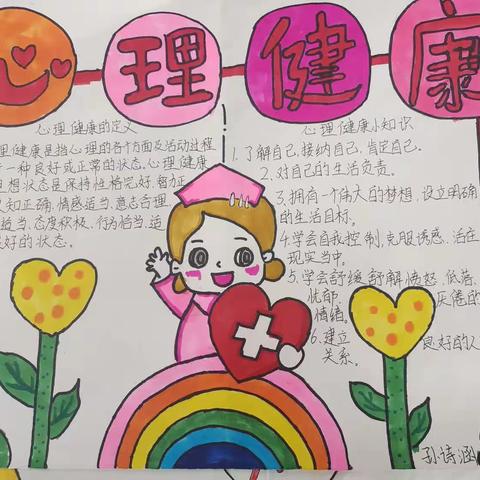 心理健康
心理健康的定义
理健康是指心理的各个方面及活动过程
一种良好或正常的状态。心理健康
想状态是保持性格完好、智力正
知正确、情感适当、意志合理、
适当、态度积极、行为恰当、适
良好的状态。
心理健康小知识
1.了解自己,接纳自己,肯定自己。
2.对自己的生活负责。
3.拥有一个伟大的梦想,设立明确
的生活目标。
4.学会自我控制,克服诱惑,活在
现实当中。
5.学会舒缓舒解愤怒、低落、
忧郁、厌倦的
情绪。
6.建立良好的人
关系。
孙诗涵